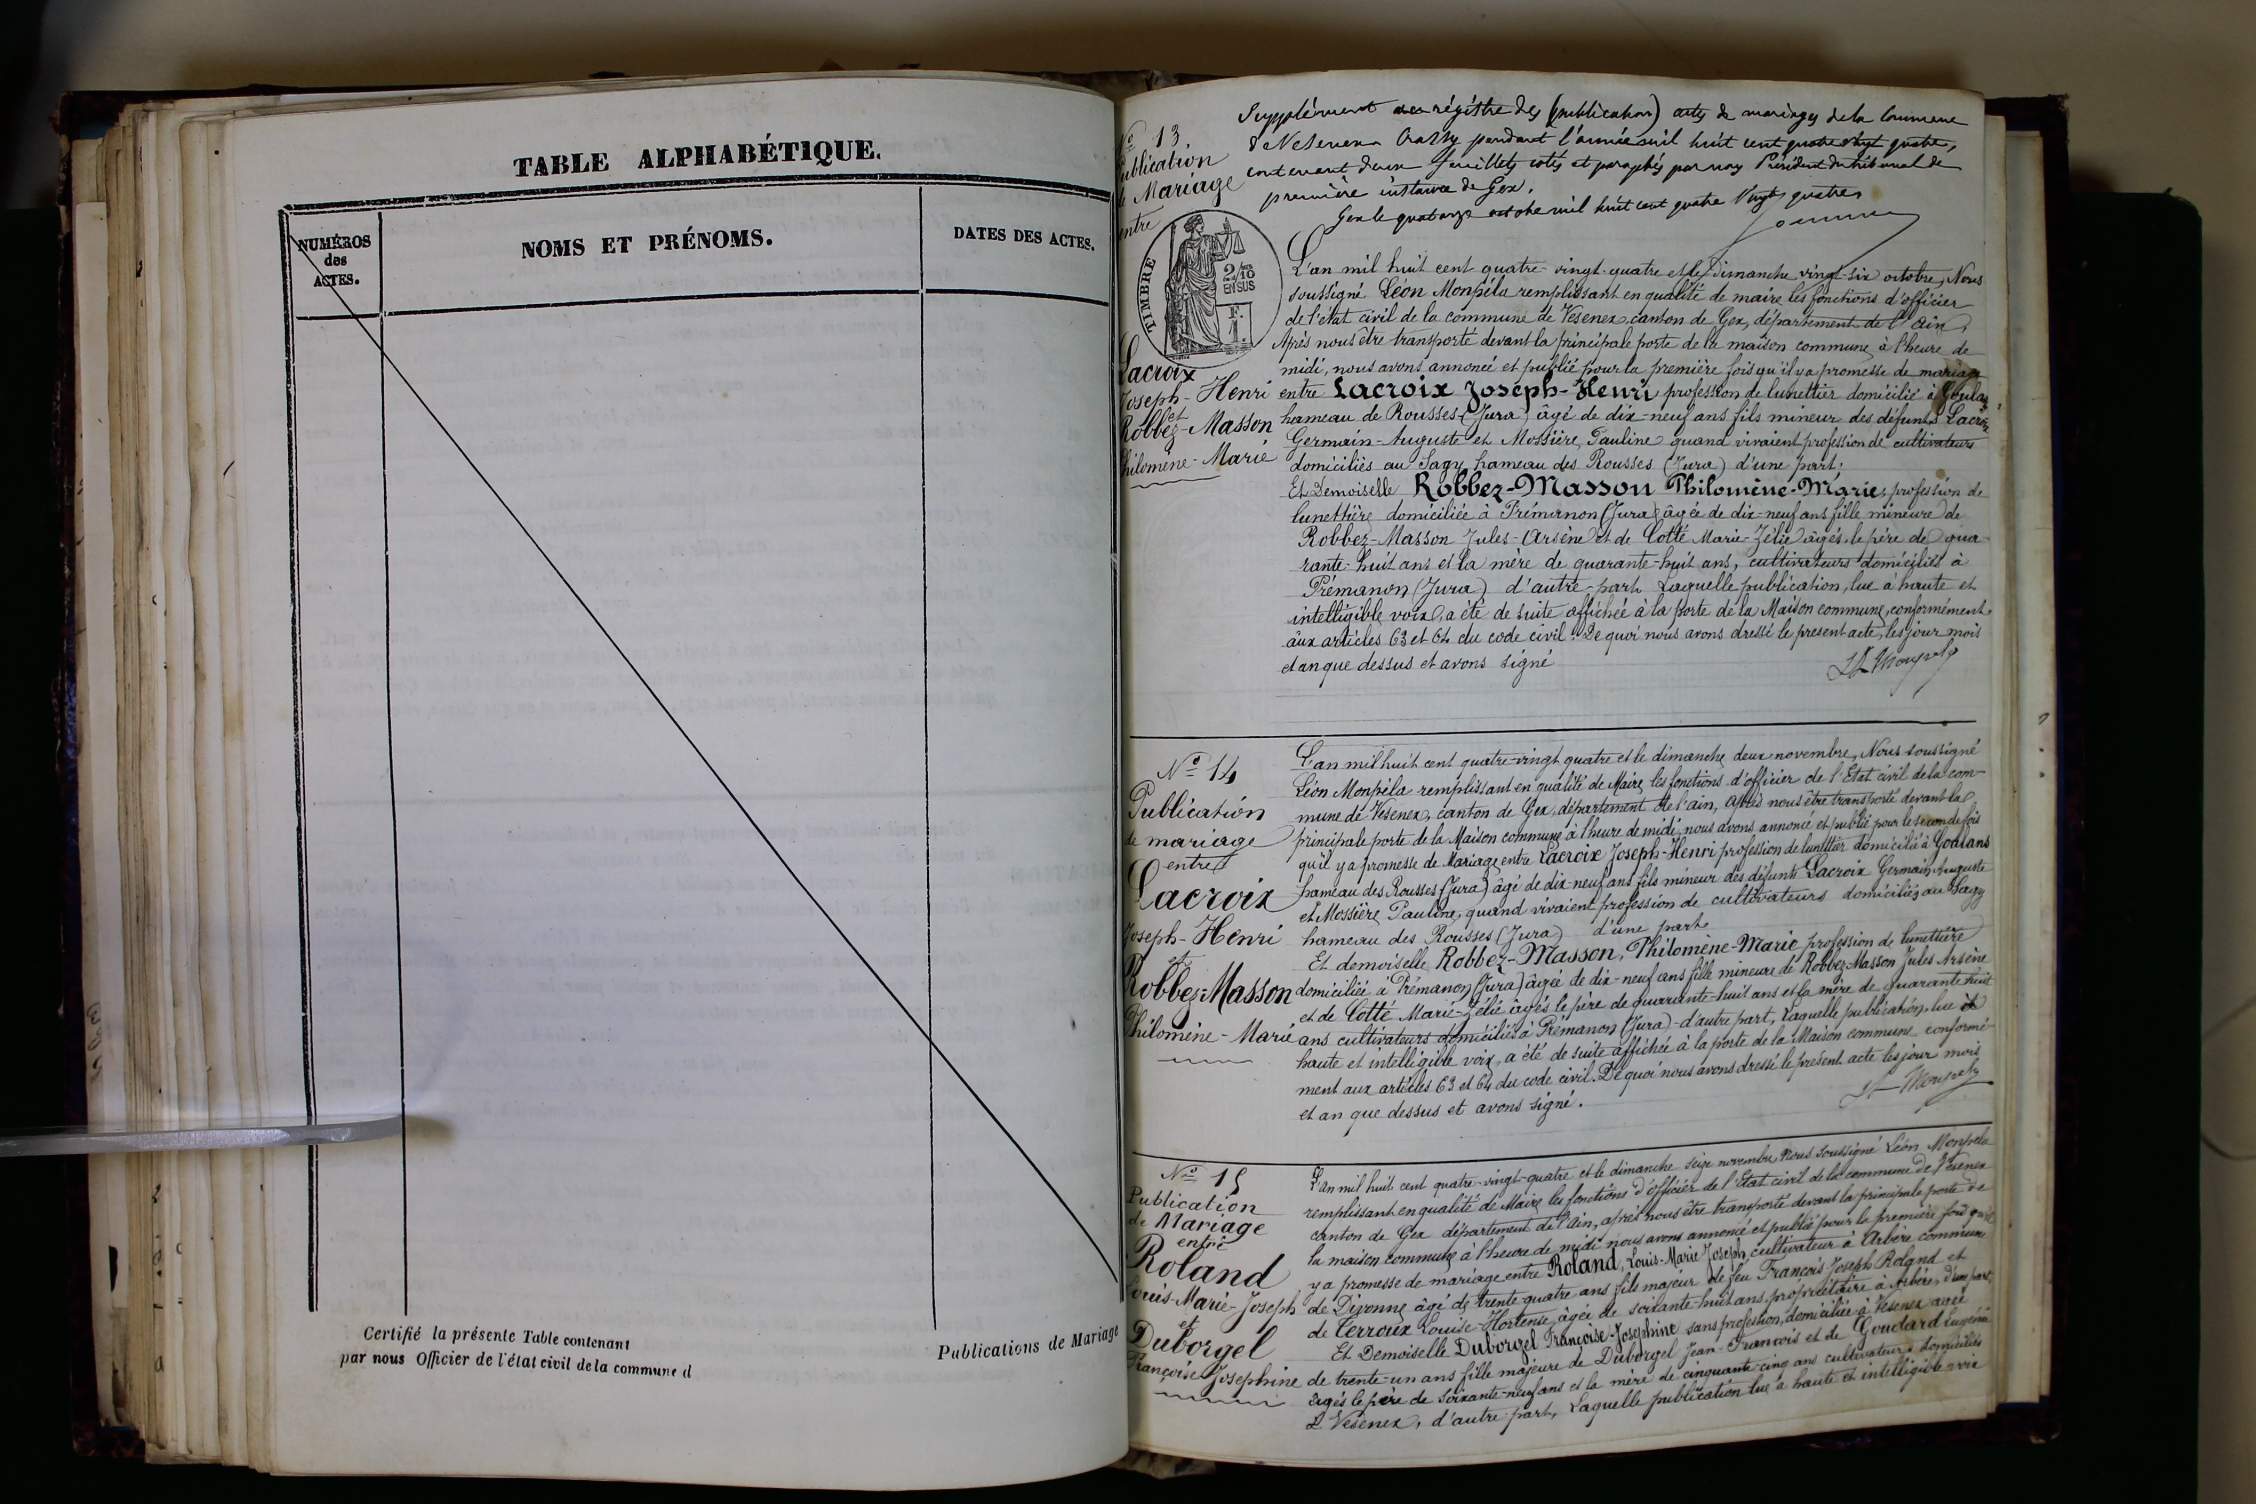 TABLE ALPHABÉTIQUE.
NUMÉROS
des
ACTES.
NOMS ET PRÉNOMS.
DATES DES ACTES.
Certifié la présente Table contenant
par nous Officier de l'état civil de la commune d
Publications de Mariage
Supplément au régistre des (publication) actes de mariages de la Commune
de Vesenex Crassy pendant l'année mil huit cent quatre vingt quatre,
contenant deux feuillets cotés et paraphés par nous Président du tribunal de
première instance de Gex.
Gex le quatorze octobre mil huit cent quatre Vingt quatre
No 13
Publication
de Mariage
entre
TIMBRE
2/10
EN SUS
F.
1.
Lacroix
Joseph-Henri
et
Robbez-Masson
Philomène-Marie
L'an mil huit cent quatre-vingt-quatre et le dimanche vingt-six octobre, Nous
soussigné Léon Monpéla remplissant en qualité de maire les fonctions d'officier
de l'état civil de la commune de Vesenex canton de Gex, département de l'ain,
Après nous être transporté devant la principale porte de la maison commune à l'heure de
midi, nous avons annoncé et publié pour la première fois qu'il y a promesse de mariage
entre Lacroix Joseph-Henri profession de lunettier domicilié à
hameau de Rousses (Jura) âgé de dix-neuf ans fils mineur des défunts Lacroix
Germain-Auguste et Mossière Pauline quand vivaient profession de cultivateurs
domiciliés au Sagy hameau des Rousses (Jura) d'une part.
Et Demoiselle Robbez-Masson Philomène-Marie, profession de
lunettière domiciliée à Prémanon (Jura) âgée de dix-neuf ans fille mineure de
Robbez-Masson Jules-Arsène et de Cotté Marie-Zélie âgés, le père de qua-
rante-huit ans et la mère de quarante-huit ans, cultivateurs domiciliés à
Prémanon (Jura) d'autre-part. Laquelle publication, lue à haute et
intelligible voix, a été de suite affichée à la porte de la Maison commune, conformément
aux articles 63 et 64 du code civil. De quoi nous avons dressé le present acte, les jour mois
et an que dessus et avons signé
No 14
Publication
de mariage
entre
Lacroix
Joseph-Henri
et
Robbez-Masson
Philomène-Marie
L'an mil huit cent quatre-vingt quatre et le dimanche deux novembre, Nous soussigné
Léon Monpéla remplissant en qualité de Maire les fonctions d'officier de l'Etat civil de la com-
mune de Vesenex, canton de Gex, département de l'ain, après nous être transporté devant la
principale porte de la Maison commune à l'heure de midi, nous avons annoncé et publié pour la seconde fois
qu'il y a promesse de Mariage entre Lacroix Joseph-Henri profession de lunettier domicilié à Goulans
hameau des Rousses (Jura) âgé de dix-neuf ans fils mineur des défunts Lacroix Germain, Auguste
et Mossière Pauline, quand vivaient profession de cultivateurs domiciliés au Sagy
hameau des Rousses (Jura) d'une part
Et demoiselle Robbez-Masson, Philomène-Marie profession de lunettière
domiciliée à Prémanon (Jura) âgée de dix-neuf ans fille mineure de Robbez-Masson Jules Arsène
et de Cotté Marie-Zélie âgés le père de quarante-huit ans et la mère de quarante huit
ans cultivateurs domiciliés à Prémanon (Jura) d'autre part, Laquelle publication, lue à
haute et intelligible voix, a été de suite affichée à la porte de la Maison commune conformé-
ment aux articles 63 et 64 du code civil. De quoi nous avons dressé le présent acte les jour mois
et an que dessus et avons signé.
No 15
Publication
de Mariage
entre
Roland
Louis-Marie-Joseph
et
Duborgel
Françoise-Josephine
L'an mil huit cent quatre-vingt-quatre et le dimanche seize novembre Nous soussigné Léon Monpela
remplissant en qualité de Maire les fonctions d'officier de l'Etat civil de la commune de Vesenex
canton de Gex département de l'Ain, après nous être transporté devant la principale porte de
la maison commune à l'heure de midi nous avons annoncé et publié pour la première fois qu'il
y a promesse de mariage entre Roland, Louis-Marie Joseph cultivateur à Arbère commune
de Divonne âgé de trente-quatre ans fils majeur de feu François Joseph Roland et
de Terroux Louise-Hortense âgée de soixante-huit ans, propriétaire à Arbère, d'une part,
Et Demoiselle Duborgel Françoise-Josephine sans profession, domiciliée à Vesenex agée
de trente-un ans fille majeure de Duborgel Jean-François et de Goudard Eugénie
âgés le père de soixante-neuf ans et la mère de cinquante-cinq ans cultivateurs domiciliés
à Vesenex, d'autre-part, Laquelle publication lue à haute et intelligible voix